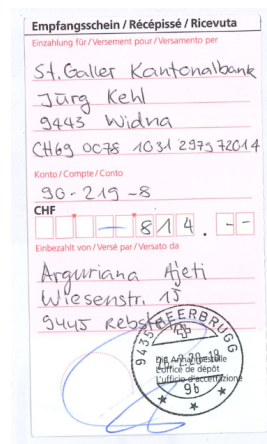 Empfangsschein / Récépissé / Ricevuta
Einzahlung für / Versement pour / Versamento per
St. Galler Kantonalbank
Jürg Kehl
9443 Widna
CH69 0078 1031 2979 72014
Konto / Compte / Conto
90-219-8
CHF
— 814 . --
Einbezahlt von / Versé par / Versato da
Arguriana Ajeti
Wiesenstr. 15
9445 Rebstein
9435 HEERBRUGG
Die Annahmestelle
L'office de dépôt
L'ufficio d'accettazione
9b